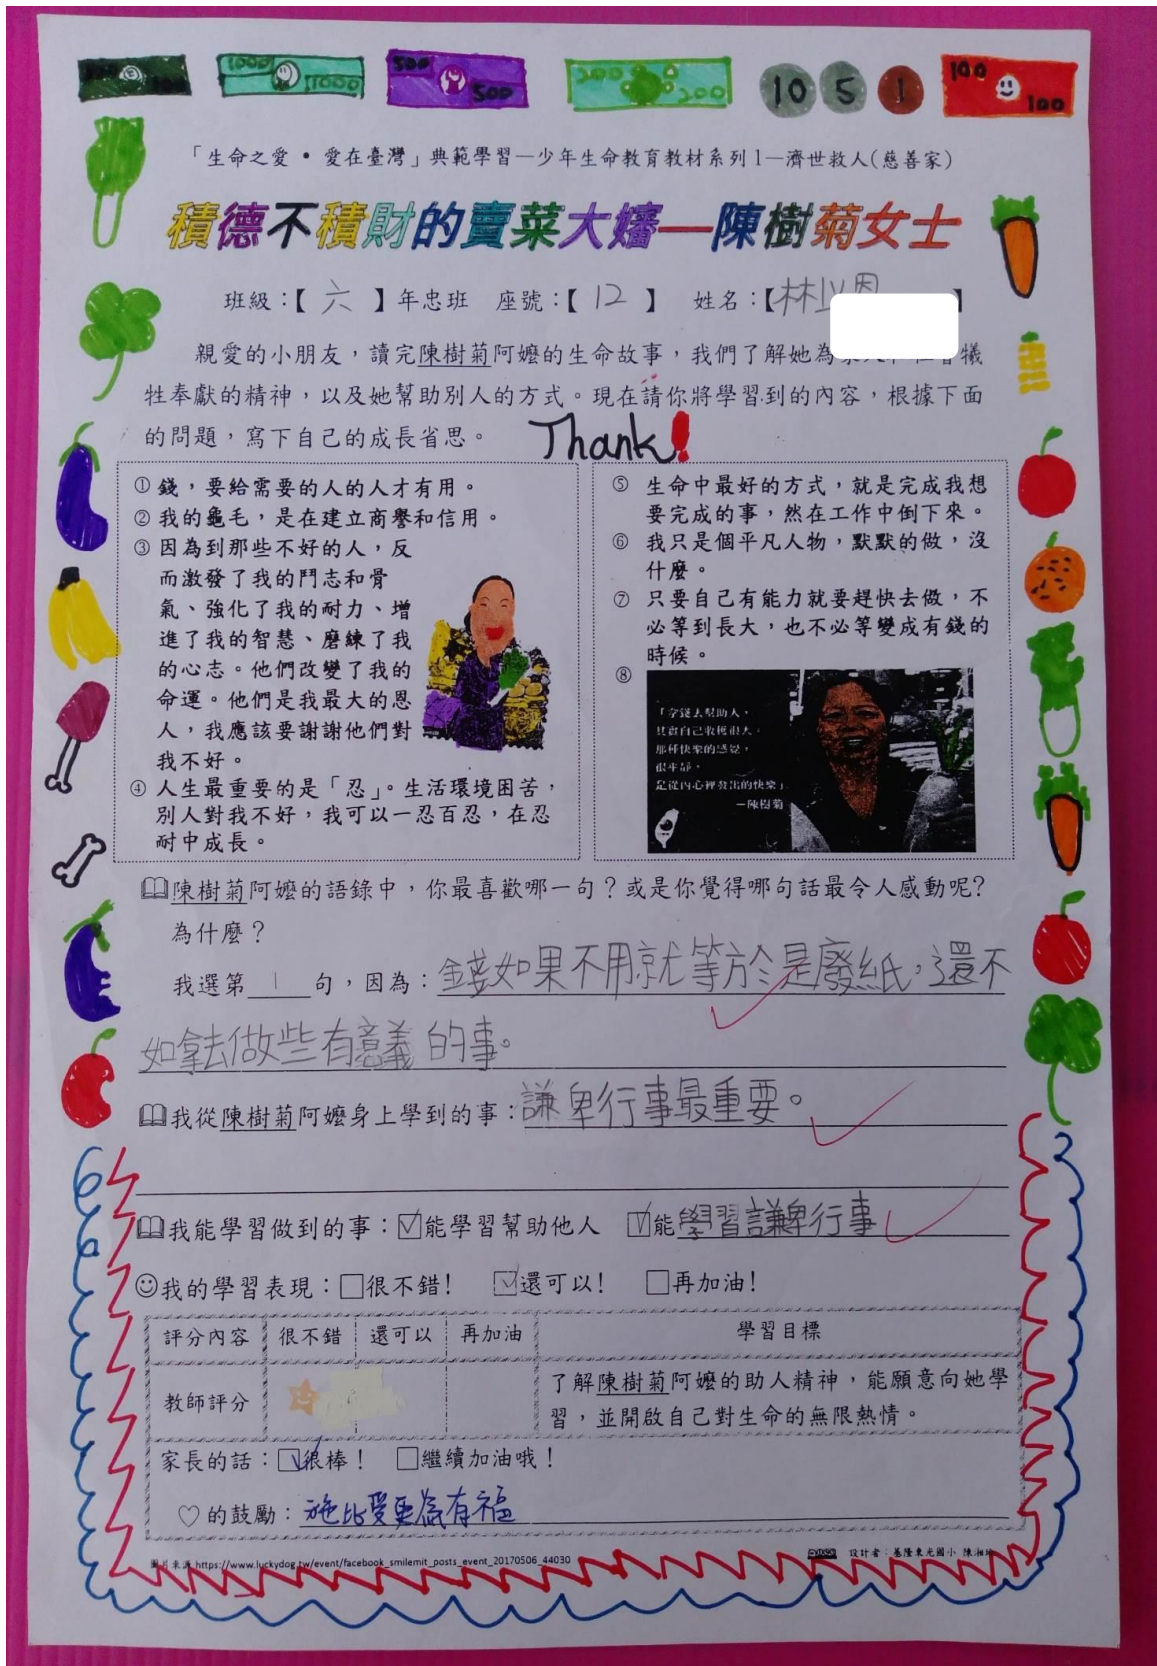 1000 1000
500 500
200 200
10 5 1
100 100
「生命之愛•愛在臺灣」典範學習—少年生命教育教材系列1—濟世救人(慈善家)
積德不積財的賣菜大嬸—陳樹菊女士
班級：【 六 】年忠班 座號：【 12 】 姓名：【林 】
親愛的小朋友，讀完陳樹菊阿嬤的生命故事，我們了解她為 犧
牲奉獻的精神，以及她幫助別人的方式。現在請你將學習到的內容，根據下面
的問題，寫下自己的成長省思。
Thank!
① 錢，要給需要的人的人才有用。
② 我的龜毛，是在建立商譽和信用。
③ 因為到那些不好的人，反
而激發了我的鬥志和骨
氣、強化了我的耐力、增
進了我的智慧、磨練了我
的心志。他們改變了我的
命運。他們是我最大的恩
人，我應該要謝謝他們對
我不好。
④ 人生最重要的是「忍」。生活環境困苦，
別人對我不好，我可以一忍百忍，在忍
耐中成長。
⑤ 生命中最好的方式，就是完成我想
要完成的事，然在工作中倒下來。
⑥ 我只是個平凡人物，默默的做，沒
什麼。
⑦ 只要自己有能力就要趕快去做，不
必等到長大，也不必等變成有錢的
時候。
⑧
「拿錢去幫助人，
其實自己收穫很大。
那種快樂的感覺，
很平靜，
是從內心裡發出的快樂」
—陳樹菊
陳樹菊阿嬤的語錄中，你最喜歡哪一句？或是你覺得哪句話最令人感動呢？
為什麼？
我選第 1 句，因為：錢如果不用就等於是廢紙，還不
如拿去做些有意義的事。
我從陳樹菊阿嬤身上學到的事：謙卑行事最重要。
我能學習做到的事：☑能學習幫助他人 ☑能學習謙卑行事
☺我的學習表現：□很不錯！ ☑還可以！ □再加油！
評分內容 很不錯 還可以 再加油 學習目標
教師評分 了解陳樹菊阿嬤的助人精神，能願意向她學
習，並開啟自己對生命的無限熱情。
家長的話：☑很棒！ □繼續加油哦！
♡的鼓勵：施比受更為有福
圖片來源 https://www.luckydog.tw/event/facebook_smilemit_posts_event_20170506_44030
設計者：基隆東光國小 陳湘